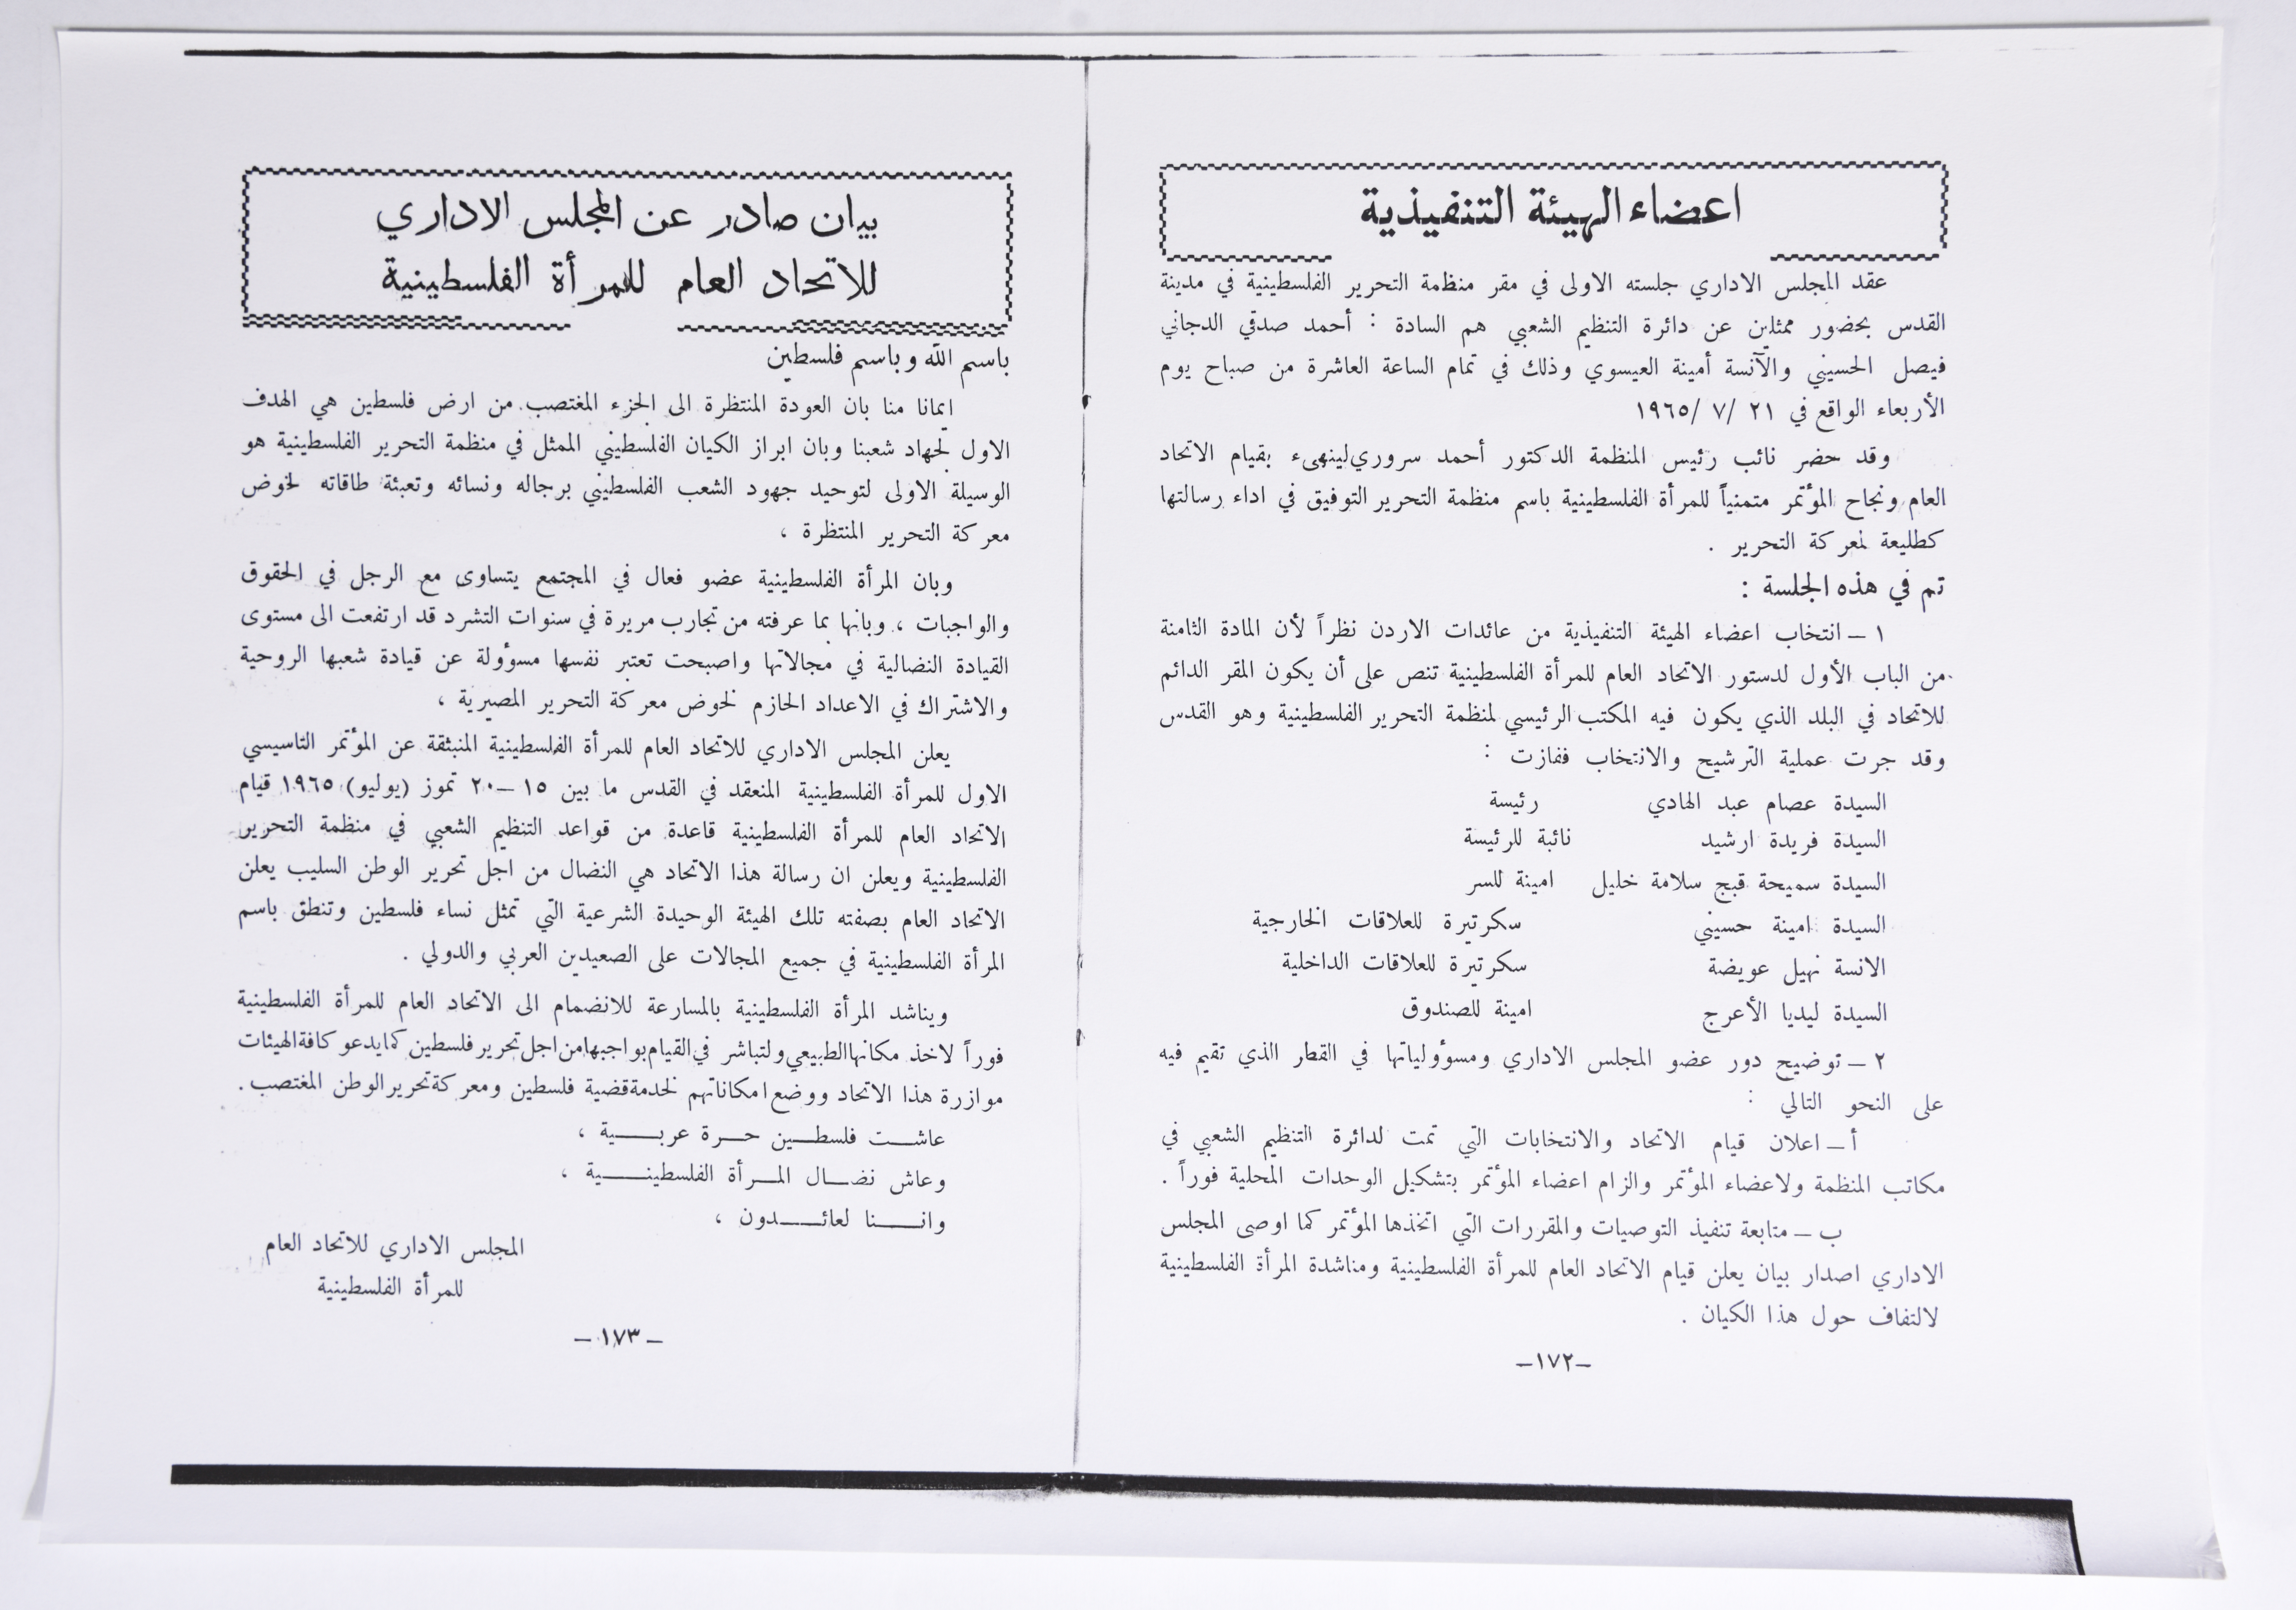 اعضاء الهيئة التنفيذية
عقد المجلس الاداري جلسته الاولى في مقر منظمة التحرير الفلسطينية في مدينة
القدس بحضور ممثلين عن دائرة التنظيم الشعبي هم السادة : أحمد صدقي الدجاني
فيصل الحسيني والآنسة أمينة العيسوي وذلك في تمام الساعة العاشرة من صباح يوم
الأربعاء الواقع في ٢١ /٧ /١٩٦٥
وقد حضر نائب رئيس المنظمة الدكتور أحمد سروري لينهىء بقيام الاتحاد
العام ونجاح المؤتمر متمنياً للمرأة الفلسطينية باسم منظمة التحرير التوفيق في اداء رسالتها
كطليعة لمعركة التحرير .
تم في هذه الجلسة :
١ – انتخاب اعضاء الهيئة التنفيذية من عائدات الاردن نظراً لأن المادة الثامنة
من الباب الأول لدستور الاتحاد العام للمرأة الفلسطينية تنص على أن يكون المقر الدائم
للاتحاد في البلد الذي يكون فيه المكتب الرئيسي لمنظمة التحرير الفلسطينية وهو القدس
وقد جرت عملية الترشيح والانتخاب ففازت :
السيدة عصام عبد الهادي رئيسة
السيدة فريدة ارشيد نائبة للرئيسة
السيدة سميحة قبج سلامة خليل امينة للسر
السيدة امينة حسيني سكرتيرة للعلاقات الخارجية
الانسة نهيل عويضة سكرتيرة للعلاقات الداخلية
السيدة ليديا الأعرج امينة للصندوق
٢ – توضيح دور عضو المجلس الاداري ومسؤولياتها في القطر الذي تقيم فيه
على النحو التالي :
أ – اعلان قيام الاتحاد والانتخابات التي تمت لدائرة التنظيم الشعبي في
مكاتب المنظمة ولاعضاء المؤتمر والزام اعضاء المؤتمر بتشكيل الوحدات المحلية فوراً .
ب – متابعة تنفيذ التوصيات والمقررات التي اتخذها المؤتمر كما اوصى المجلس
الاداري اصدار بيان يعلن قيام الاتحاد العام للمرأة الفلسطينية ومناشدة المرأة الفلسطينية
لالتفاف حول هذا الكيان .
–١٧٢–
بيان صادر عن المجلس الاداري
للاتحاد العام للمرأة الفلسطينية
باسم الله وباسم فلسطين
ايمانا منا بان العودة المنتظرة الى الجزء المغتصب من ارض فلسطين هي الهدف
الاول لجهاد شعبنا وبان ابراز الكيان الفلسطيني الممثل في منظمة التحرير الفلسطينية هو
الوسيلة الاولى لتوحيد جهود الشعب الفلسطيني برجاله ونسائه وتعبئة طاقاته لخوض
معركة التحرير المنتظرة ،
وبان المرأة الفلسطينية عضو فعال في المجتمع يتساوى مع الرجل في الحقوق
والواجبات ، وبانها بما عرفته من تجارب مريرة في سنوات التشرد قد ارتفعت الى مستوى
القيادة النضالية في مجالاتها واصبحت تعتبر نفسها مسؤولة عن قيادة شعبها الروحية
والاشتراك في الاعداد الحازم لخوض معركة التحرير المصيرية ،
يعلن المجلس الاداري للاتحاد العام للمرأة الفلسطينية المنبثقة عن المؤتمر التاسيسي
الاول للمرأة الفلسطينية المنعقد في القدس ما بين ١٥ –٢٠ تموز (يوليو) ١٩٦٥ قيام
الاتحاد العام للمرأة الفلسطينية قاعدة من قواعد التنظيم الشعبي في منظمة التحرير
الفلسطينية ويعلن ان رسالة هذا الاتحاد هي النضال من اجل تحرير الوطن السليب يعلن
الاتحاد العام بصفته تلك الهيئة الوحيدة الشرعية التي تمثل نساء فلسطين وتنطق باسم
المرأة الفلسطينية في جميع المجالات على الصعيدين العربي والدولي .
ويناشد المرأة الفلسطينية بالمسارعة للانضمام الى الاتحاد العام للمرأة الفلسطينية
فوراً لاخذ مكانها الطبيعي ولتباشر في القيام بواجبها من اجل تحرير فلسطين كما يدعو كافة الهيئات
موازرة هذا الاتحاد ووضع امكاناتهم لخدمة قضية فلسطين ومعركة تحرير الوطن المغتصب .
عاشـــت فلسطـــين حـــرة عربـــية ،
وعاش نضـــال المـــرأة الفلسطينـــية ،
وانـــنا لعائـــدون ،
المجلس الاداري للاتحاد العام
للمرأة الفلسطينية
– ١٧٣ –